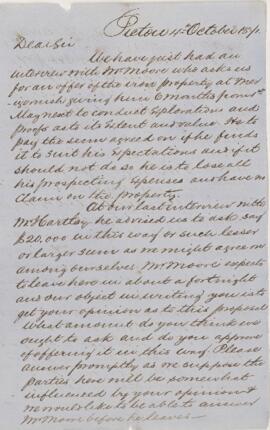 Pictou 4th October 187
Dear Sir
We have just had an
interview with Mr Moore who asks us
for an offer of the iron property at Mer
giving him 6 months from 1st
May next to conduct Explorations and
proofs as to its Extent and value. He to
pay the sum agreed on if he finds
it to suit his Expectations and if it
should not do so he is to lose all
his prospecting Expenses and have no
claim on the property.
At our last interview with
Mr Hartley he advised us to ask say
£20,000 in this way or such lesser
or larger sum as we might agree on
among ourselves. Mr Moore expects
to leave here in about a fortnight
and our object in writing you is to
get your opinion as to this proposal
what amount do you think we
ought to ask and do you approve
of offering it in this way. Please
answer promptly as we suppose the
Parties here will be somewhat
influenced by your opinion &
we would like to be able to answer
Mr Moore before he leaves